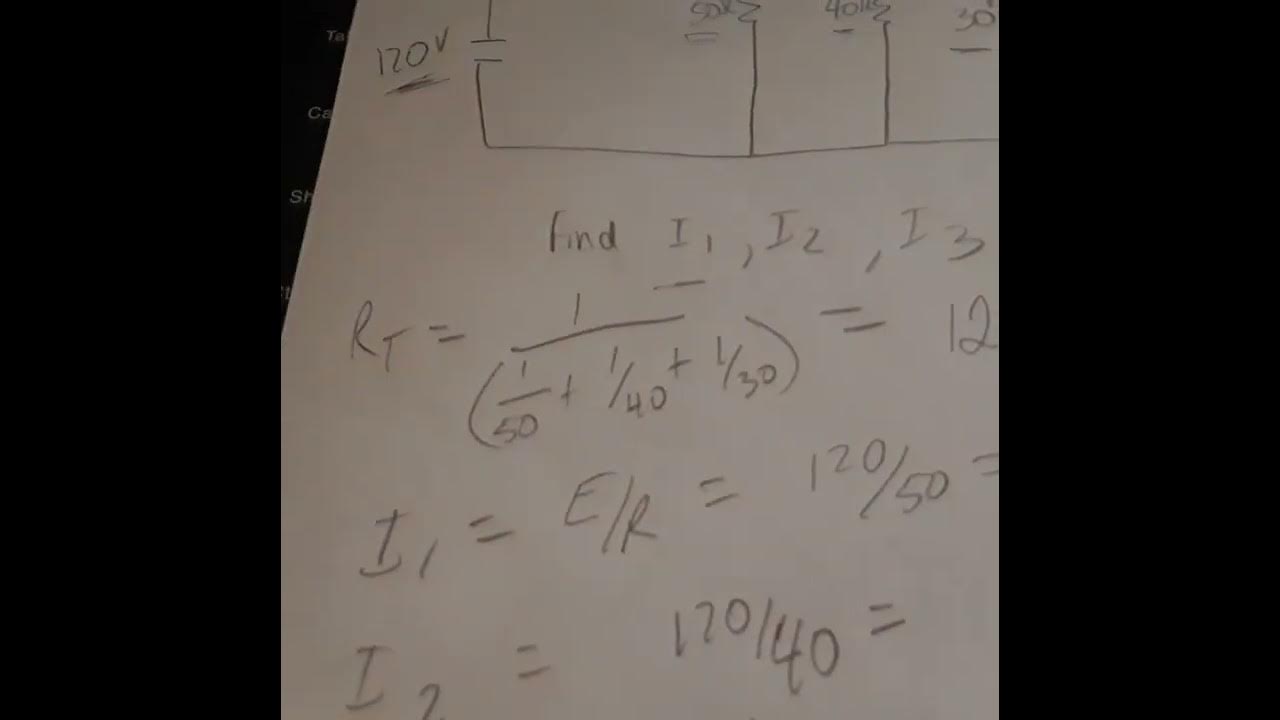 Ta
Ca
Sh
120V
50
40
30
find I1, I2, I3
RT = 1/(1/50 + 1/40 + 1/30) = 12
I1 = E/R = 120/50 =
I2 = 120/40 =